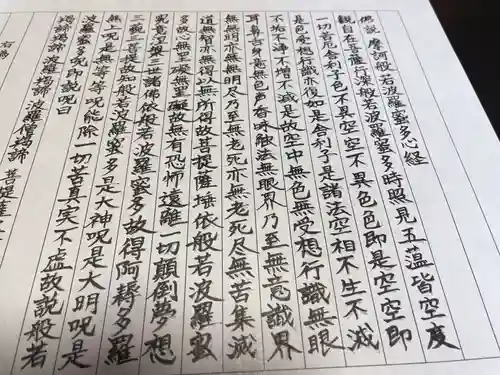 佛説 摩訶般若波羅蜜多心経
観自在菩薩行深般若波羅蜜多時照見五蘊皆空度
一切苦厄舎利子色不異空空不異色色即是空空即
是色受想行識亦復如是舎利子是諸法空相不生不滅
不垢不浄不増不減是故空中無色無受想行識無眼
耳鼻舌身意無色声香味触法無眼界乃至無意識界
無無明亦無無明尽乃至無老死亦無老死尽無苦集滅
道無智亦無得以無所得故菩提薩埵依般若波羅蜜
多故心無罣礙無罣礙故無有恐怖遠離一切顛倒夢想
究竟涅槃三世諸佛依般若波羅蜜多故得阿耨多羅
三藐三菩提故知般若波羅蜜多是大神呪是大明呪是
無上呪是無等等呪能除一切苦真実不虚故説般若
波羅蜜多呪即説呪曰
羯諦羯諦 波羅羯諦 波羅僧羯諦 菩提薩
右為